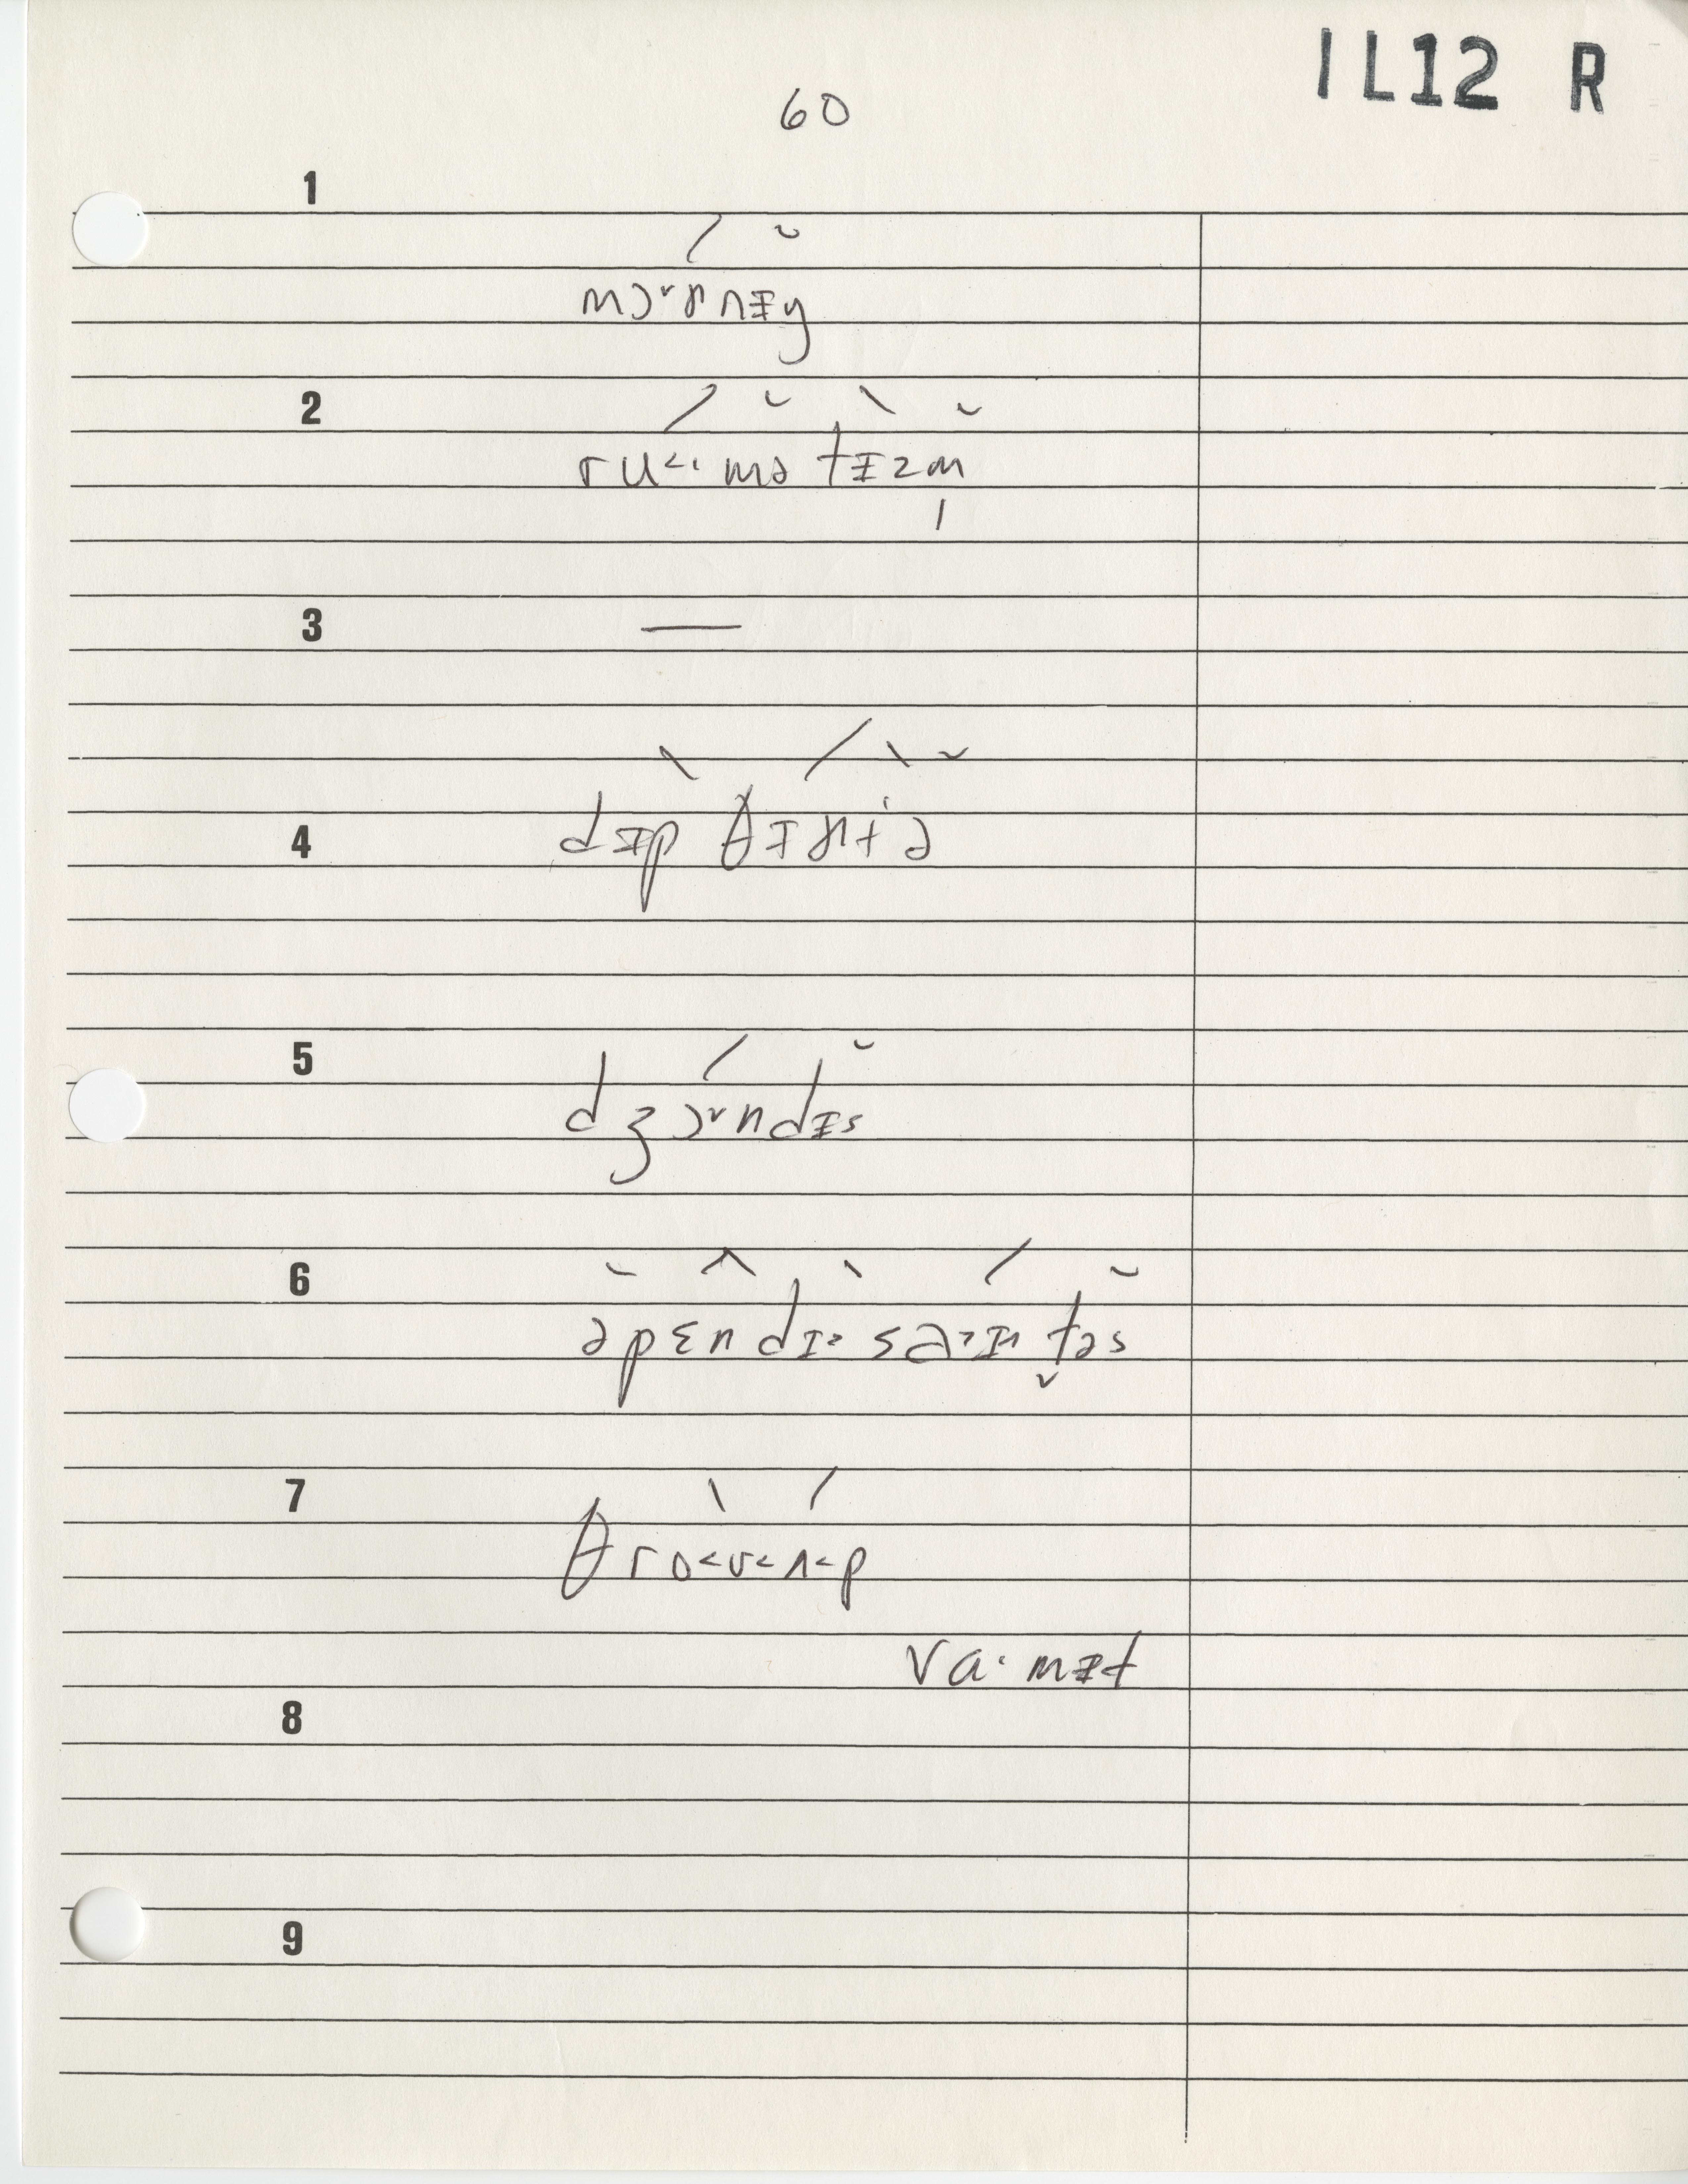 IL12 R
60
1
mɔ˅ɤnɪŋ
2
ru<·mətɪzm̩
3
—
4
dɪpθɪɤɨə
5
dʒɔ˅ndɪs
6
əpɛndɪ>sa>ɪn t̬əs
7
θro<ʊ<ʌ<p
va·mɪt
8
9